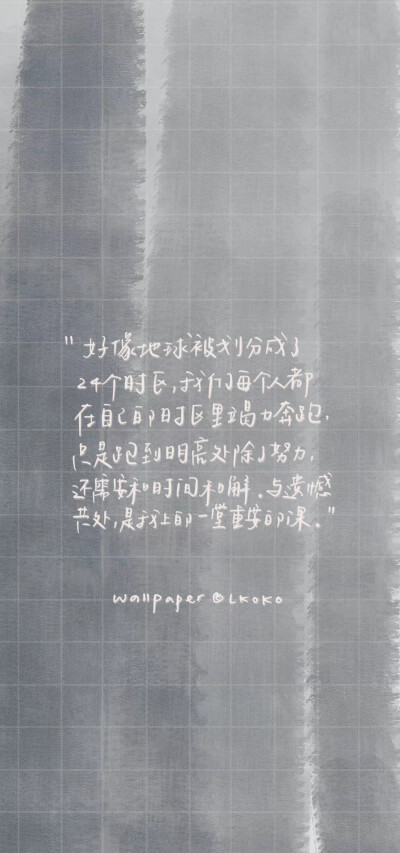 "好像地球被划分成了
24个时区,我们每个人都
在自己的时区里竭力奔跑,
只是跑到明亮处除了努力,
还需要和时间和解.与遗憾
共处,是我上的一堂重要的课."
wallpaper @LKOKO